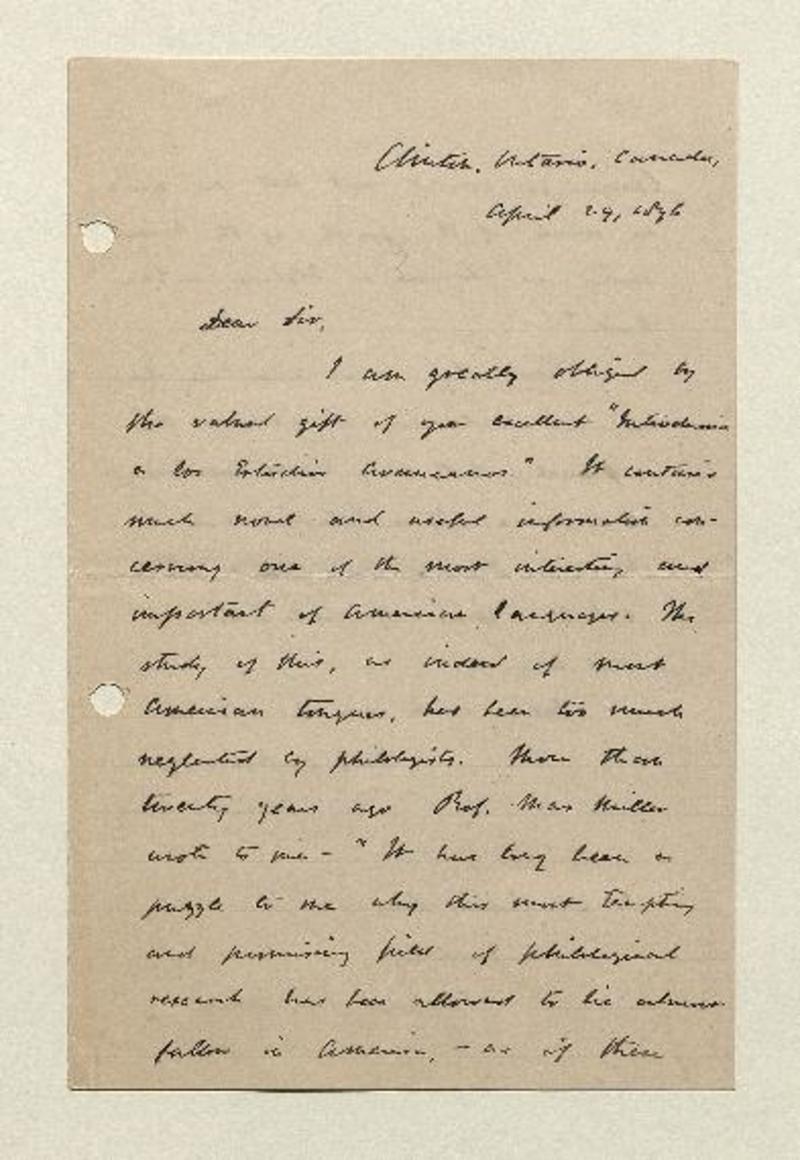 Clinton, Ontario, Canada,
April 29, 1896
Dear Sir,
I am greatly obliged by
the valued gift of your excellent "Introduccion
a los Estudios Americanos." It contains
much novel and useful information con-
cerning one of the most interesting and
important of American languages. The
study of this, as indeed of most
American tongues, has been too much
neglected by philologists. More than
twenty years ago Prof. Max Müller
wrote to me - "It has long been a
puzzle to me why this most tempting
and promising field of philological
research has been allowed to lie almost
fallow in America, - as if these